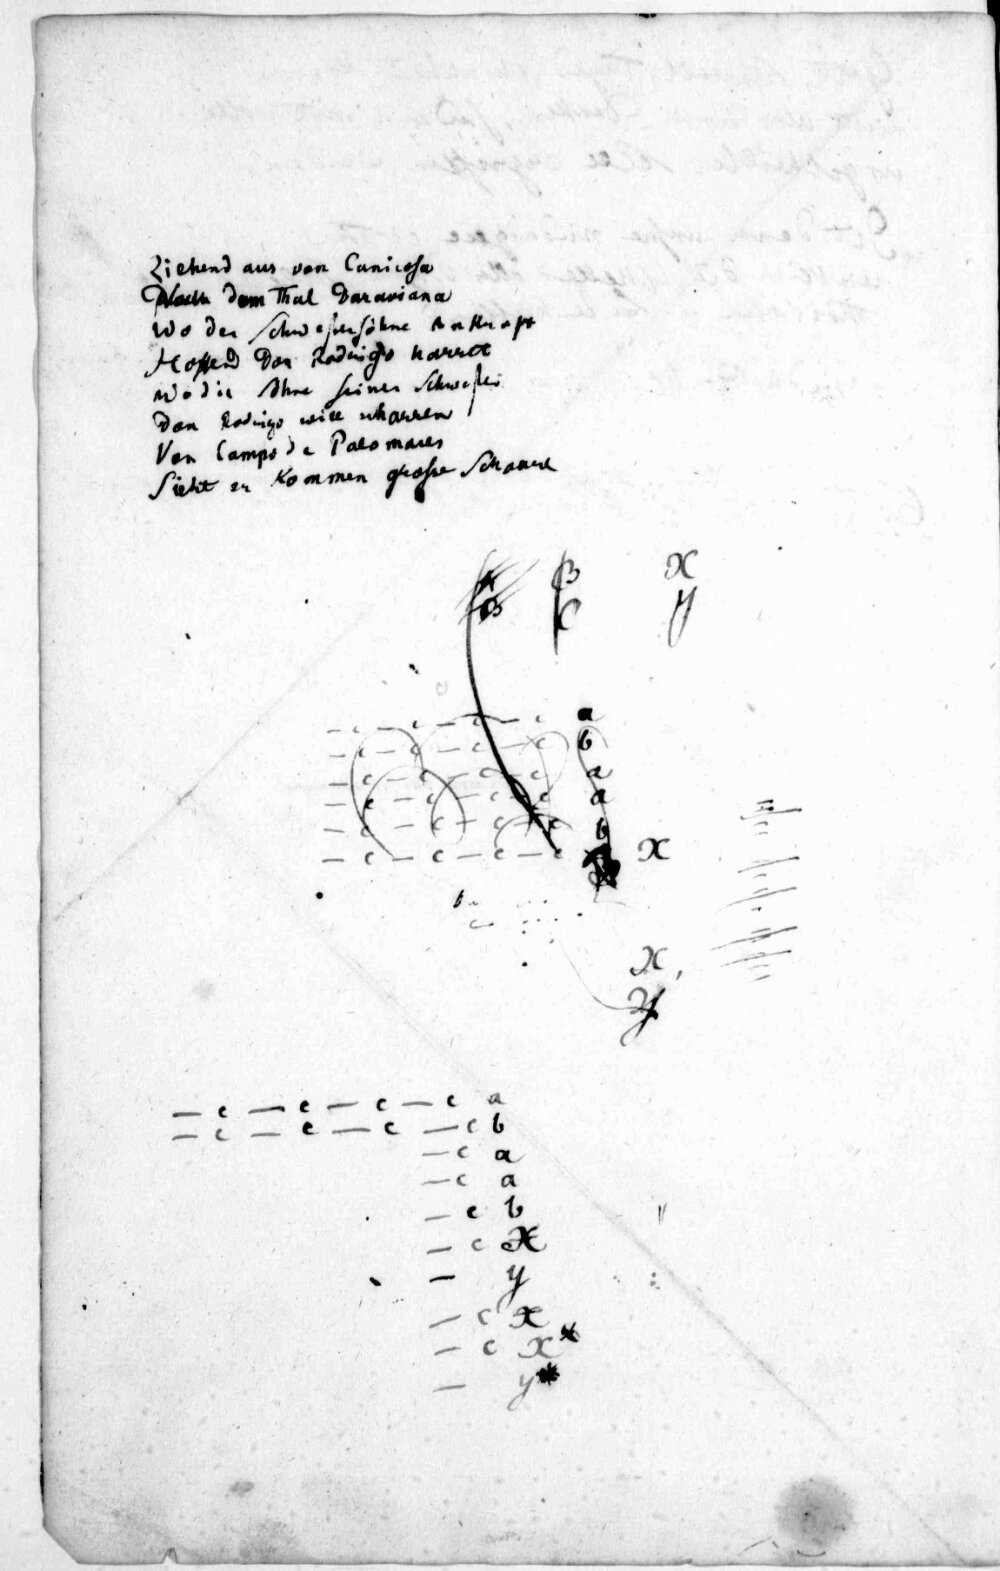 Ziehend aus von Canicosa
Nach dem Thal Daraviana
Wo der Schwestersöhne Ankunft
Hoffend Don Rodrigo harret
wo die Söhne seiner Schwester
Don Rodrigo will erharren
Von Campo de Palomares
Sieht er kommen große Schaaren
A B X
B C y
— c — c — c — c a
— c — c — c — c b
— c — c — c — c a
— c — c — c — c a
— c — c — c — c b
— c — c — c — c X
X
y
— c — c — c — c a
— c — c — c — c b
— c a
— c a
— c b
— c X
— y
— c x
— c x*
— y*